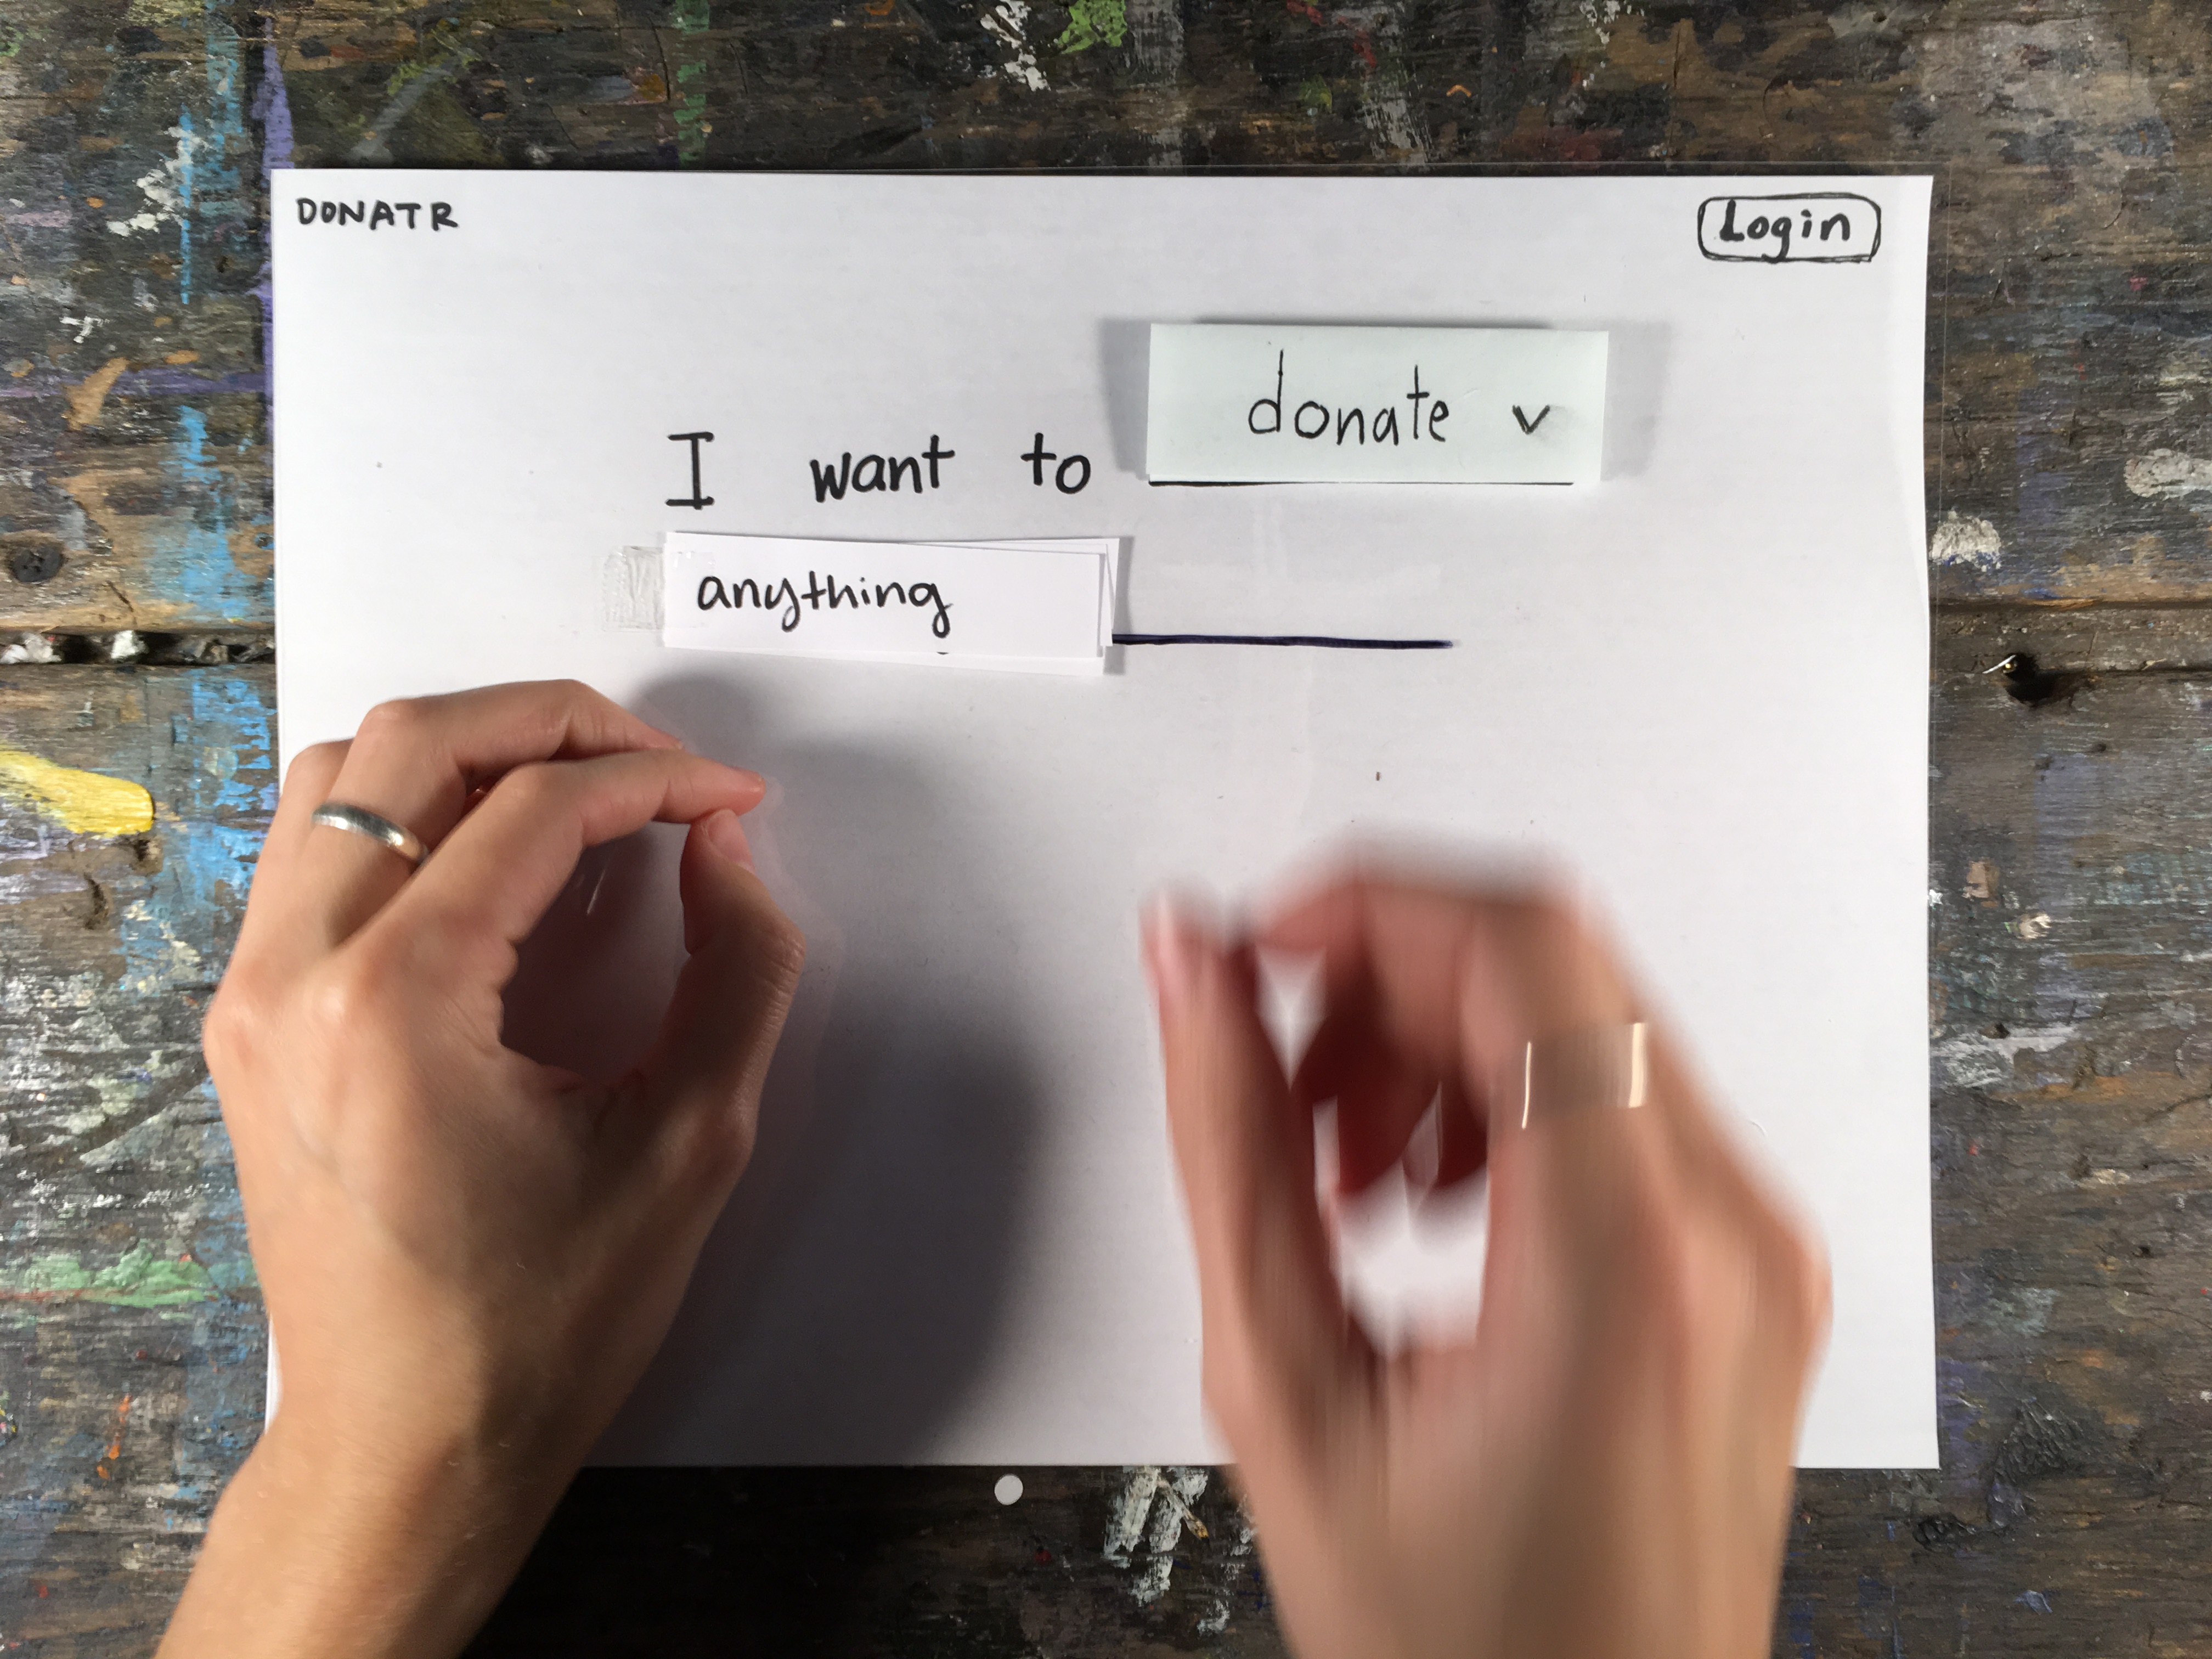 DONATR
Login
I want to donate v
anything